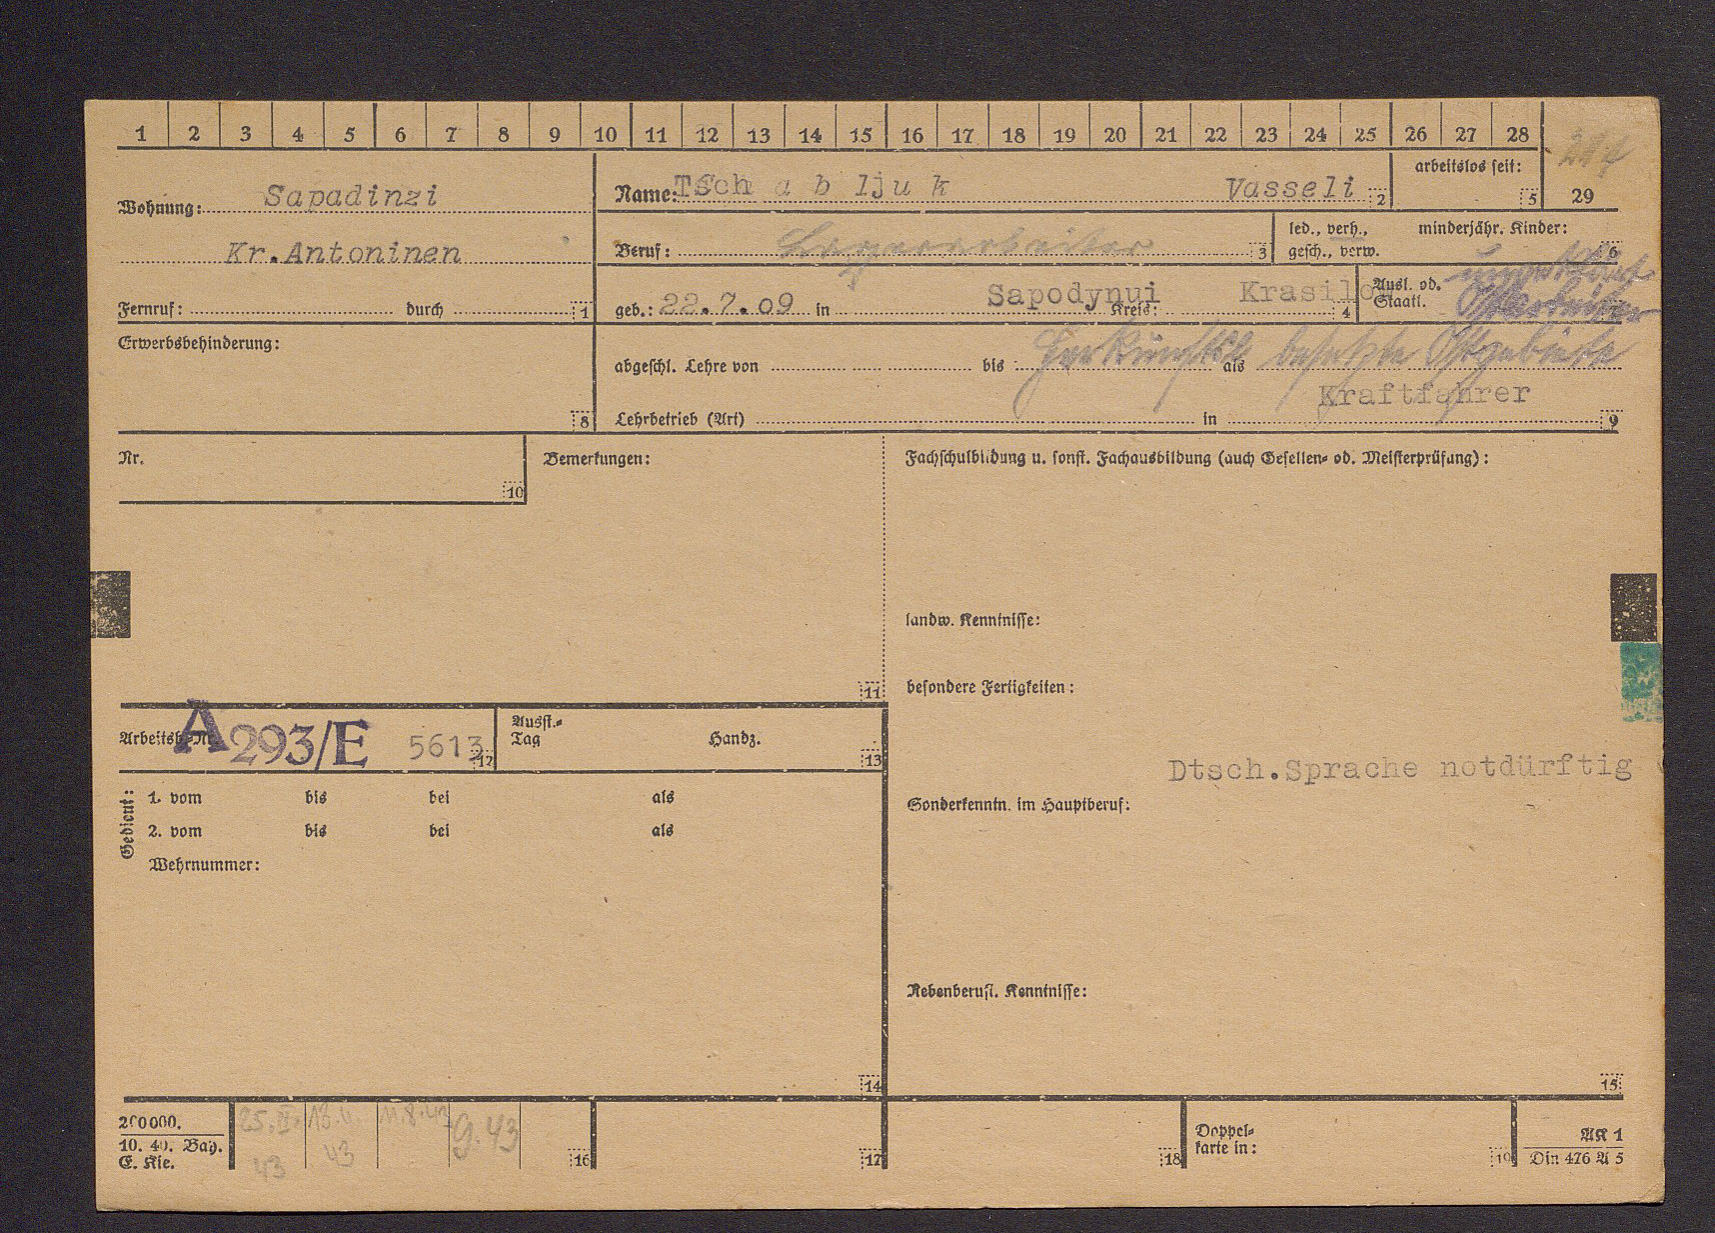 1 2 3 4 5 6 7 8 9 10 11 12 13 14 15 16 17 18 19 20 21 22 23 24 25 26 27 28
arbeitslos seit: 5 29
Wohnung: Sapadinzi
Name: Tschabljuk Vasseli 2
Kr. Antoninen
Beruf: Lagerarbeiter 3
led., verh., gesch., verw.
minderjähr. Kinder: 6
ungeklärt
Fernruf: durch 1
geb.: 22.7.09 in Sapodynui Kreis: Krasilow 4
Ausl. od. Staatl. Ostarbeiter
Erwerbsbehinderung: 8
Herkunftsl besetzte Ostgebiete
abgeschl. Lehre von bis als
Kraftfahrer
Lehrbetrieb (Art) in 9
Nr. 10
Bemerkungen: 11
Fachschulbildung u. sonst. Fachausbildung (auch Gesellen- od. Meisterprüfung):
landw. Kenntnisse:
besondere Fertigkeiten:
Arbeitsb.-Nr. A293/E 5613 12
Ausst.-Tag Handz. 13
Dtsch. Sprache notdürftig
Gedient:
1. vom bis bei als
2. vom bis bei als
Wehrnummer:
Sonderkenntn. im Hauptberuf:
Nebenberufl. Kenntnisse:
14
15
200000.
10. 40. Bay.
E. Kie.
25.II. 43
13.4. 43
11.8.43
9.43
16
17
18
Doppelkarte in: 19
AK 1
Din 476 A 5